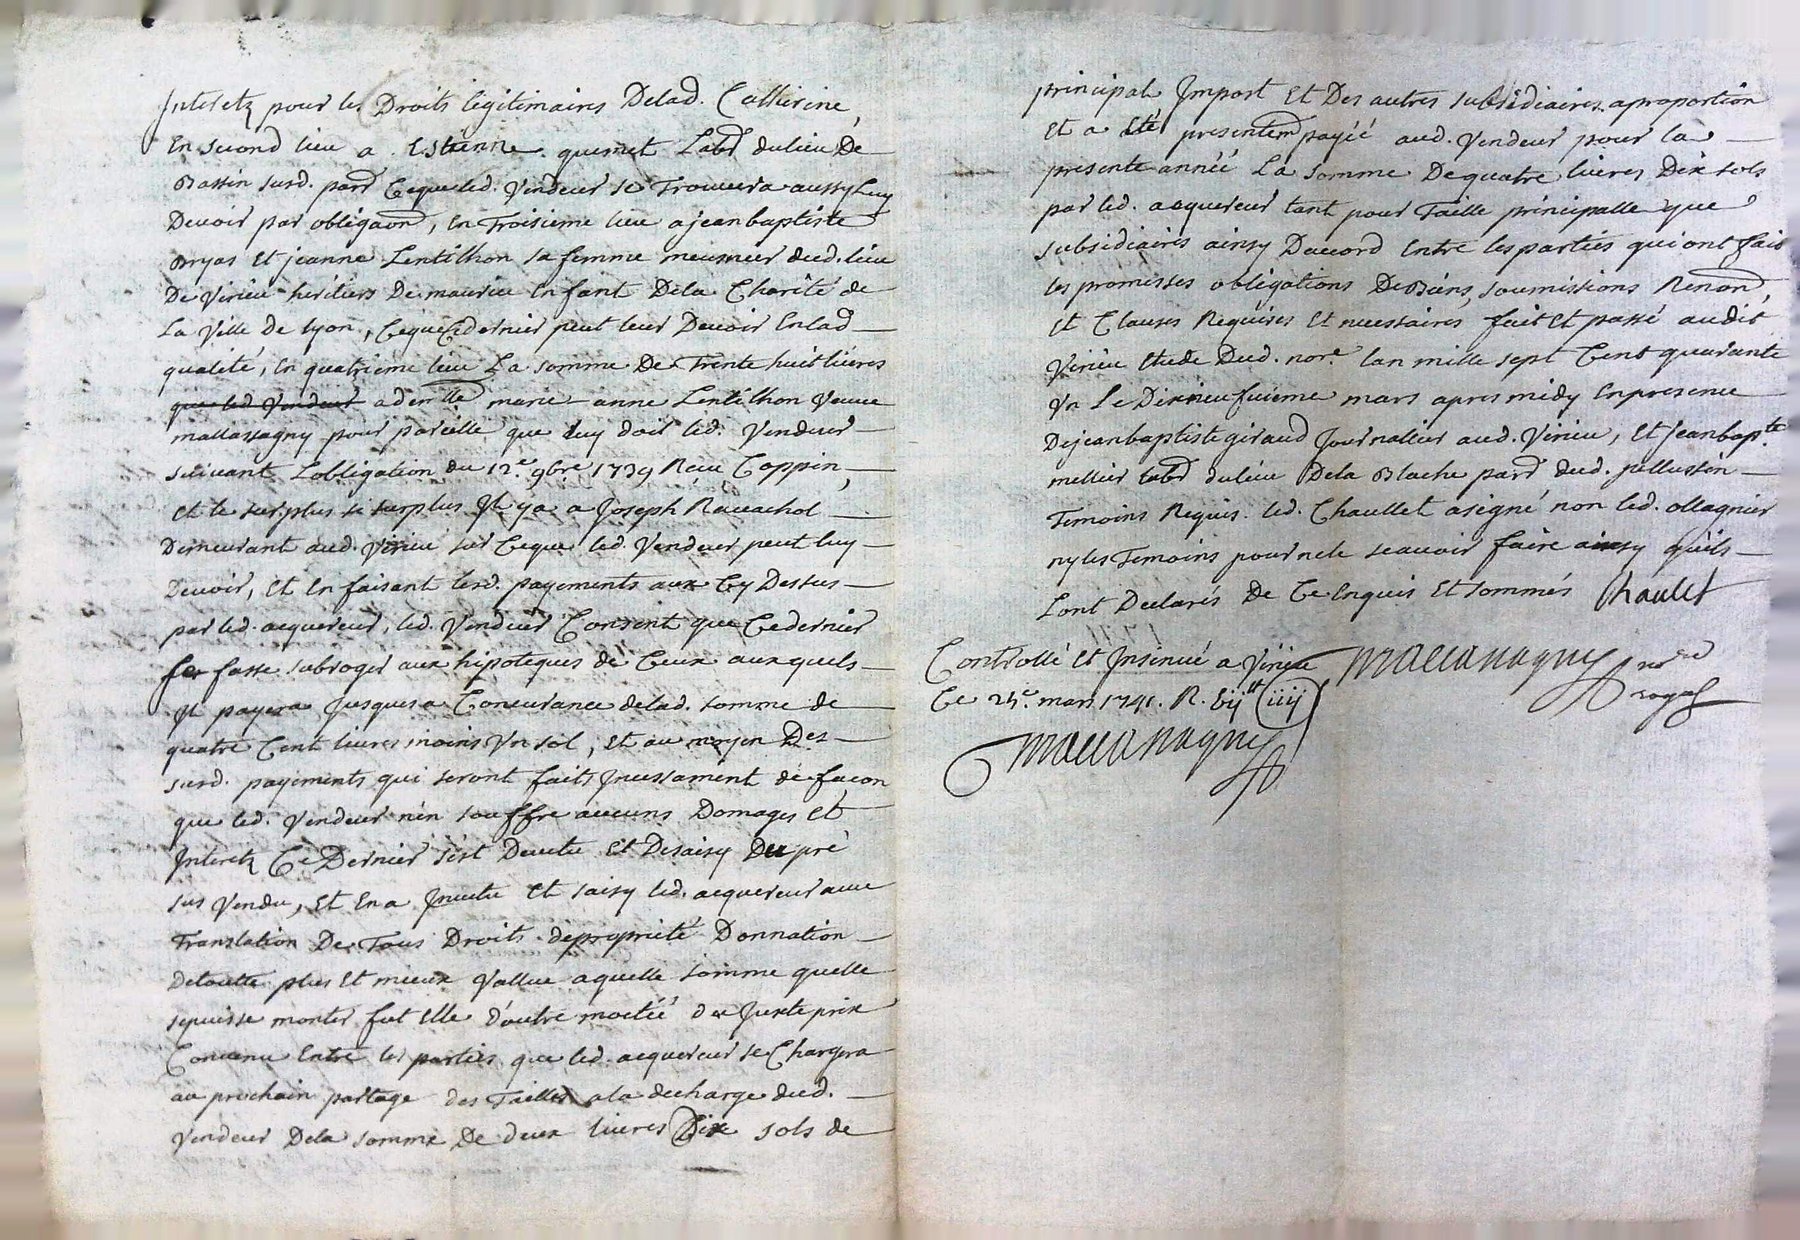 Interetz pour les Droits legitimaires Delad. Catherine,
En second lieu a Estienne quemet Labr dulieu De
Bassin surd. par Ceque led. Vendeur se Trouvera aussy Luy
Devoir par obligaon, En Troisieme lieu a jean baptiste
Bryas Et jeanne Lentilhon sa femme meusnier dud. lieu
De Virieu heritiers De maurice Enfant Dela Charité de
La Ville de lyon, Ceque Cedernier peut leur Devoir Enlad
qualité, En quatrieme lieu La somme De Trente huit livres
que led. Vendeur a demlle marie anne Lentilhon Veuve
pour pareille que luy doit led. Vendeur
suivant Lobligation du 12e. 9bre 1739 Reçu Coppin,
Et le surplus si surplus Il ya a Joseph Ravachol
Demeurant aud. Virieu sur Ceque led. Vendeur peut luy
Devoir, Et En faisant lesd. payements aux Cy Dessus
par led. acquereur, led. Vendeur Consent que Cedernier
se fasse subroger aux hipoteques de Ceux auxquels
Il payera Jusques a Concurance delad. somme de
quatre Cent livres moins Vn sol, Et au moyen Des
surd. payements qui seront faits Incessament de façon
que led. Vendeur nén souffre aucuns Domages Et
Interetz Ce Dernier sést Devetu Et Desaisy Du pré
sus Vendu, Et En a Invetu Et saisy led. acquereur avec
Translation De Tous Droits depropriete Donnation
Detoutte plus Et mieux Vallue a quelle somme quelle
sepuisse monter fut Elle d'outre moetié du Juste prix
Convenu Entre les parties que led. acquereur se Chargera
au prochain partage des Tailles a la decharge dud.
Vendeur Dela somme De deux livres Dix sols de
principal Import Et Des autres subsidiaires aproportion
Et a Eté presentem payéé aud. Vendeur pour la
presente année La somme De quatre livres Dix sols
par led. acquereur tant pour Taille principalle que
subsidiaires ainsy Dacord Entre les parties qui ont fait
les promesses obligations De Biens, soumissions Renond,
Et Clauses Requises Et necessaires fait Et passé audit
Virieu Etude Dud. nore lan mille sept Cent quarante
Vn Le Dixneufvieme mars apres midy Enpresence
Dejean baptiste giraud Journallier aud. Virieu, Et jean bapte
mellier labr dulieu Dela Blache par dud. pellussin
Temoins Requis. led. Chaullet a signé non led. ollagnier
ny les Temoins pour ne le scavoir faire ainsy quils
Lont Declarés De Ce Enquis Et Sommés Chaulet
Controllé Et Insinué a Virieu
nore royal
Ce 25e. mars 1741. R.